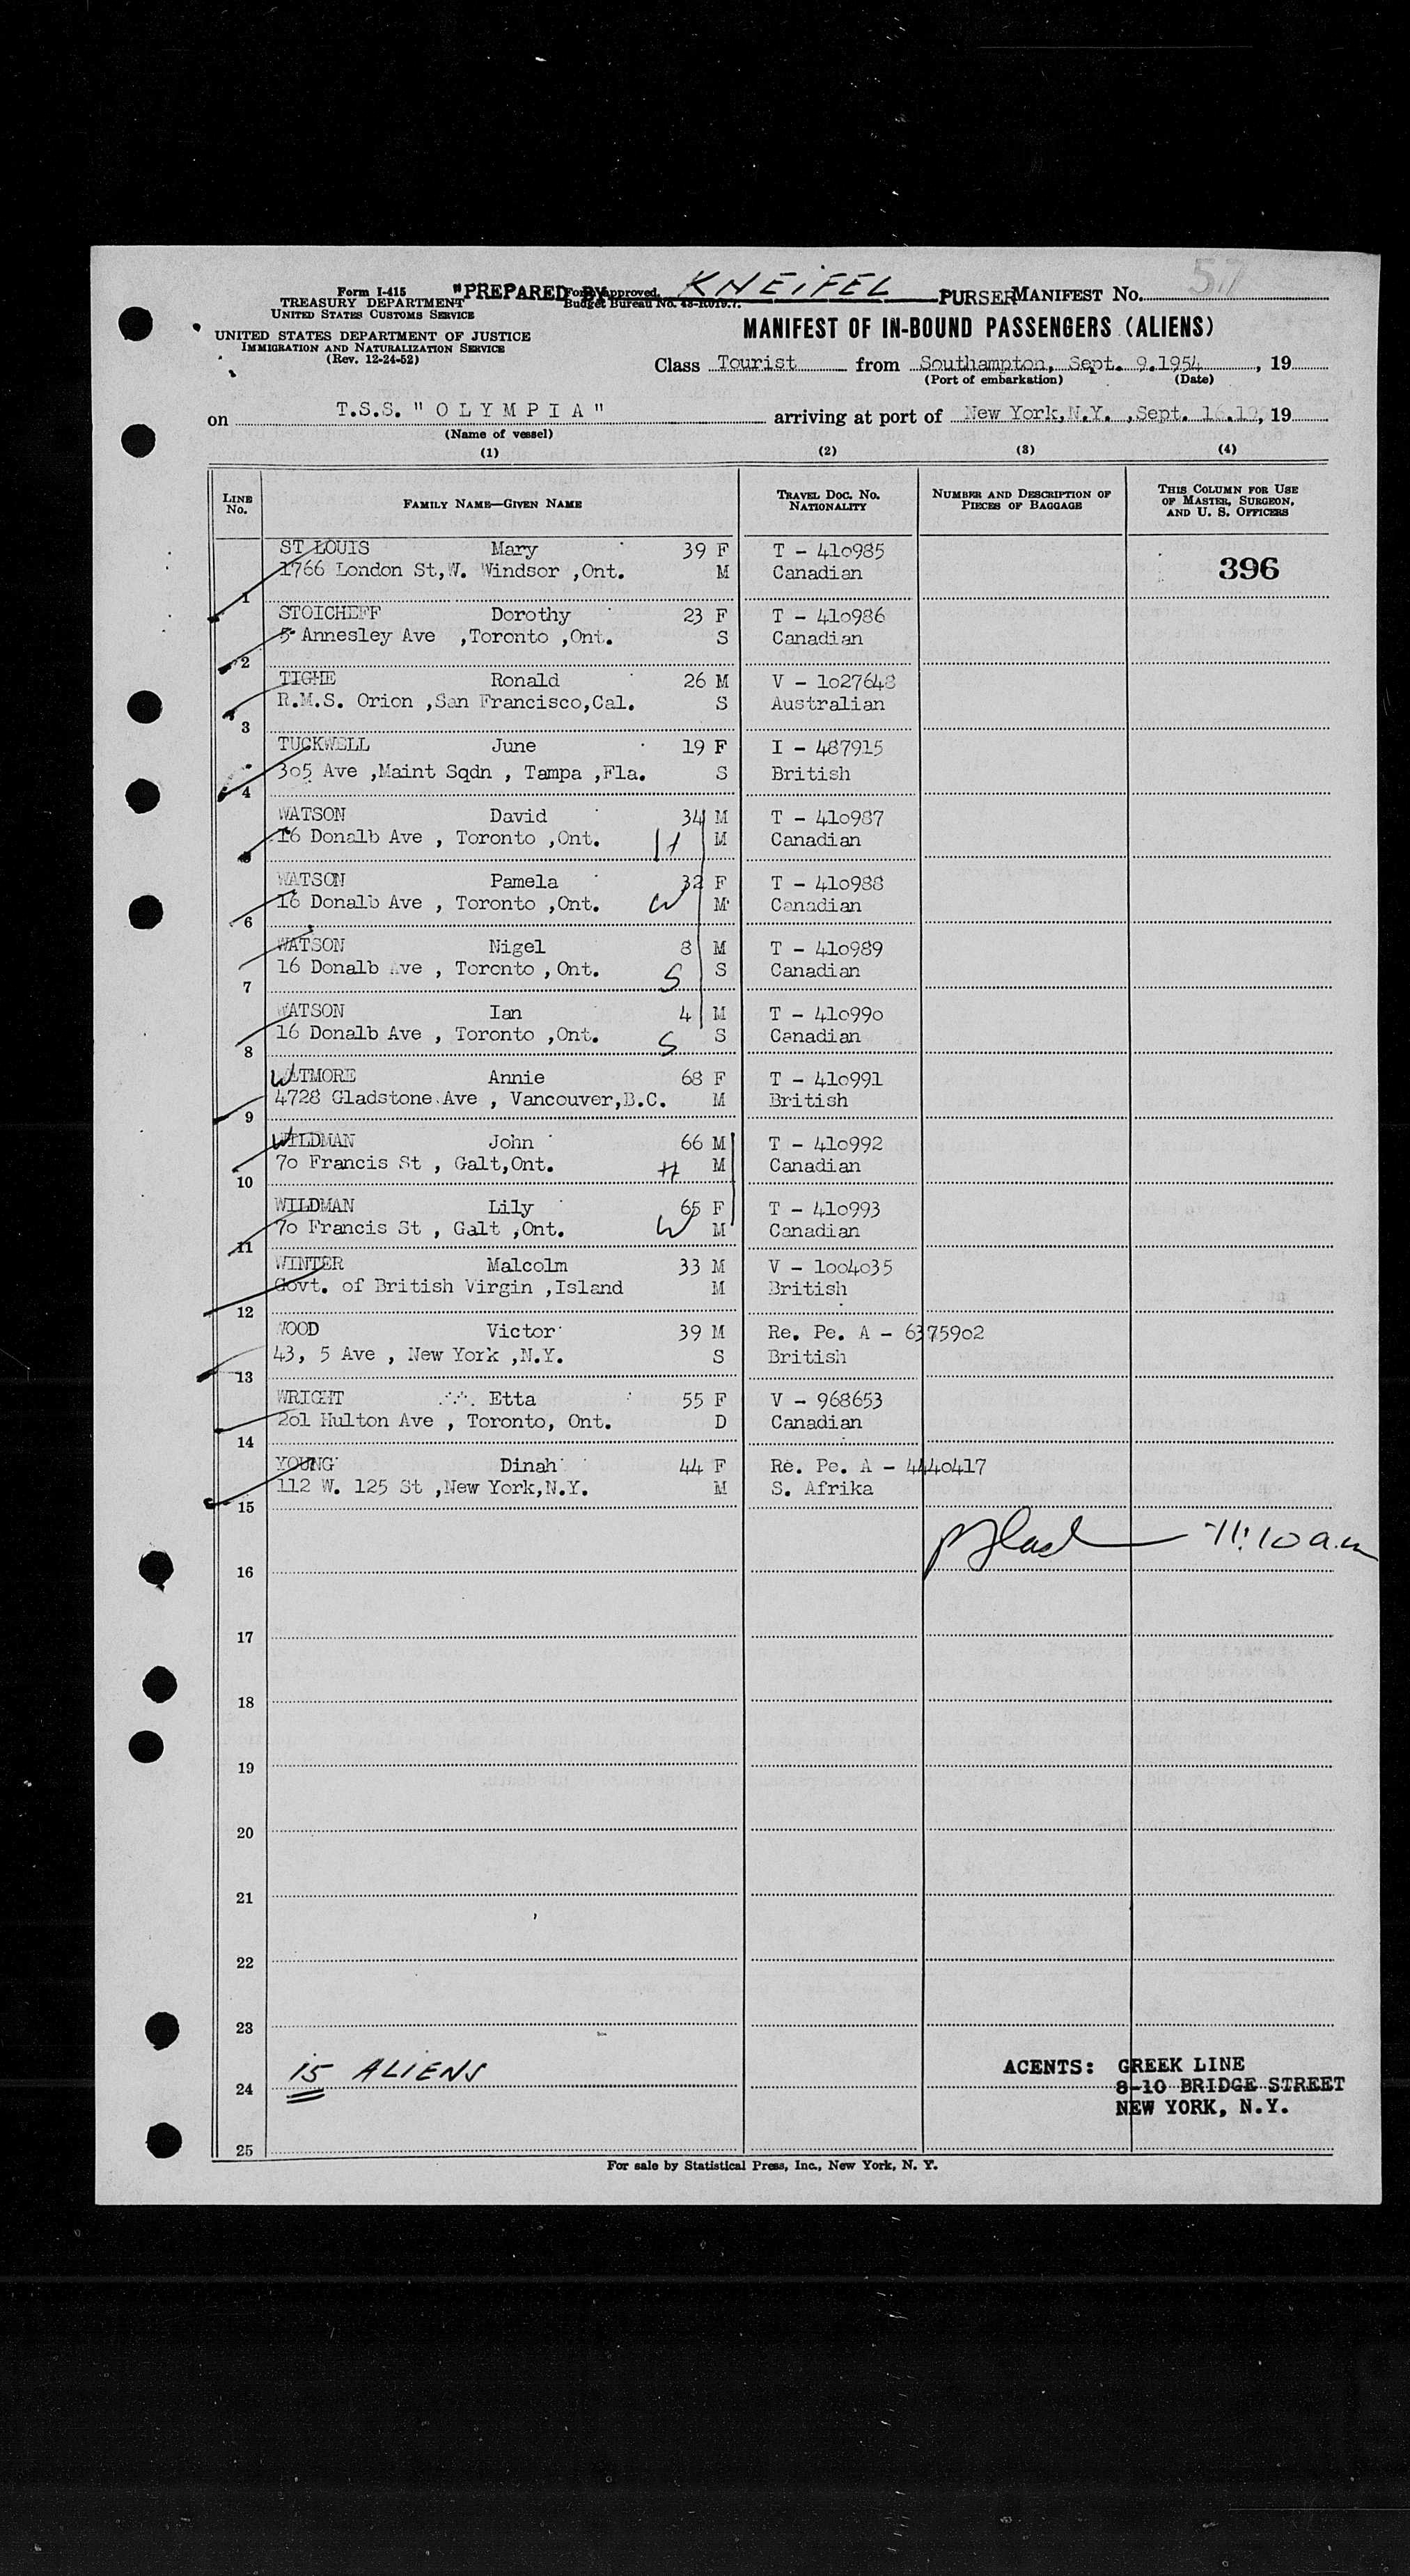 Form I-415
TREASURY DEPARTMENT
UNITED STATES CUSTOMS SERVICE
UNITED STATES DEPARTMENT OF JUSTICE
IMMIGRATION AND NATURALIZATION SERVICE
(Rev. 12-24-52)
"PREPARED BY KNEIFEL PURSER
Form approved.
Budget Bureau No. 43-R019.7.
MANIFEST NO. 57
MANIFEST OF IN-BOUND PASSENGERS (ALIENS)
Class Tourist from Southampton, Sept. 9.1954, 19
(Port of embarkation) (Date)
on T.S.S. " O L Y M P I A " arriving at port of New York, N.Y. ,Sept. 16.19, 19
(Name of vessel)
(1) (2) (3) (4)
LINE NO. FAMILY NAME—GIVEN NAME TRAVEL DOC. NO. NATIONALITY NUMBER AND DESCRIPTION OF PIECES OF BAGGAGE THIS COLUMN FOR USE OF MASTER, SURGEON, AND U. S. OFFICERS
ST LOUIS Mary 39 F T - 410985
1766 London St,W. Windsor ,Ont. M Canadian 396
1
STOICHEFF Dorothy 23 F T - 410986
5 Annesley Ave ,Toronto ,Ont. S Canadian
2
TIGHE Ronald 26 M V - 1027648
R.M.S. Orion ,San Francisco,Cal. S Australian
3
TUCKWELL June 19 F I - 487915
305 Ave ,Maint Sqdn , Tampa ,Fla. S British
4
WATSON David 34 M T - 410987
16 Donalb Ave , Toronto ,Ont. H M Canadian
5
WATSON Pamela 32 F T - 410988
16 Donalb Ave , Toronto ,Ont. W M Canadian
6
WATSON Nigel 8 M T - 410989
16 Donalb Ave , Toronto , Ont. S S Canadian
7
WATSON Ian 4 M T - 410990
16 Donalb Ave , Toronto ,Ont. S S Canadian
8
WATMORE Annie 68 F T - 410991
4728 Gladstone Ave , Vancouver,B.C. M British
9
WILDMAN John 66 M T - 410992
70 Francis St , Galt,Ont. H M Canadian
10
WILDMAN Lily 65 F T - 410993
70 Francis St , Galt ,Ont. W M Canadian
11
WINTER Malcolm 33 M V - 1004035
Govt. of British Virgin ,Island M British
12
WOOD Victor 39 M Re. Pe. A - 6375902
43, 5 Ave , New York ,N.Y. S British
13
WRIGHT Etta 55 F V - 968653
201 Hulton Ave , Toronto, Ont. D Canadian
14
YOUNG Dinah 44 F Re. Pe. A - 4440417
112 W. 125 St ,New York,N.Y. M S. Afrika
15
11:10 a.m
16
17
18
19
20
21
22
23
15 ALIENS
24
ACENTS: GREEK LINE
8-10 BRIDGE STREET
NEW YORK, N.Y.
25
For sale by Statistical Press, Inc., New York, N. Y.